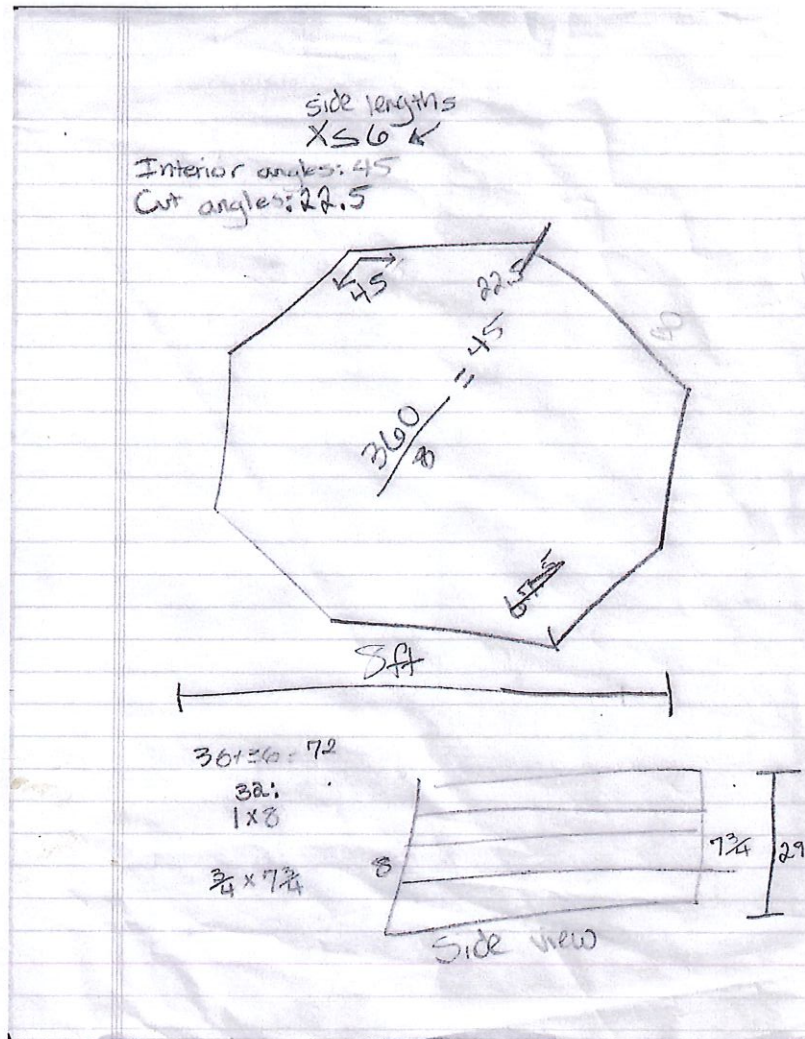 side lengths
X≤6 ↙
Interior angles: 45
Cut angles: 22.5
45
22.5
360/8 = 45
67.5
8ft
36+36=72
32:
1x8
3/4 x 7 3/4
8
7 3/4
29
Side view